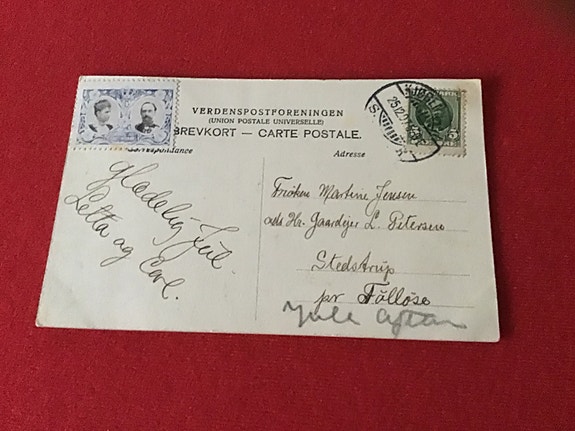 VERDENSPOSTFORENINGEN
(UNION POSTALE UNIVERSELLE)
BREVKORT — CARTE POSTALE.
Correspondance
Adresse
Glædelig Jul.
Petta og Carl.
Frøken Martine Jensen
ads Hr. Gaardejer L. Petersen
Stedstrup
pr Tølløse
Jule Aften
5